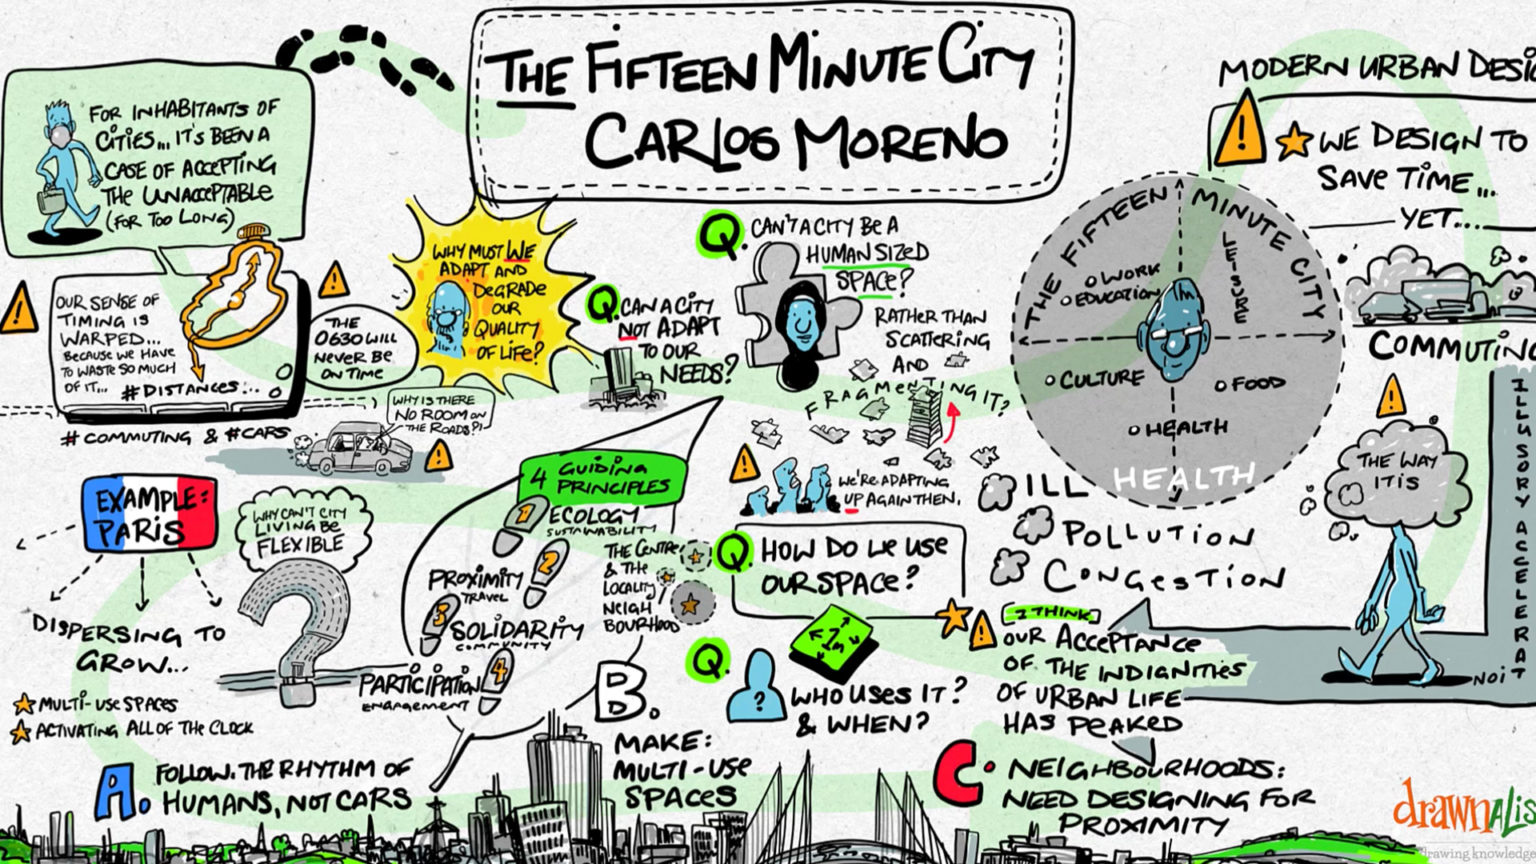 THE FIFTEEN MINUTE CITY
CARLOS MORENO
FOR INHABITANTS OF
CITIES... IT'S BEEN A
CASE OF ACCEPTING
THE UNACCEPTABLE
(FOR TOO LONG)
OUR SENSE OF
TIMING IS
WARPED...
BECAUSE WE HAVE
TO WASTE SO MUCH
OF IT...
#DISTANCES...
#COMMUTING & #CARS
THE
0630 WILL
NEVER BE
ON TIME
WHY IS THERE
NO ROOM ON
THE ROADS?!
WHY MUST WE
ADAPT AND
DEGRADE
OUR
QUALITY
OF LIFE?
Q. CAN A CITY
NOT ADAPT
TO OUR
NEEDS?
Q. CAN'T A CITY BE A
HUMAN SIZED
SPACE?
RATHER THAN
SCATTERING
AND
FRAGMENTING IT?
WE'RE ADAPTING
UP AGAIN THEN.
THE FIFTEEN MINUTE CITY
WORK
EDUCATION
LEISURE
CULTURE
FOOD
HEALTH
ILL HEALTH
POLLUTION
CONGESTION
MODERN URBAN DESI
WE DESIGN TO
SAVE TIME...
YET...
COMMUTING
THE WAY
IT IS
ILLUSORY ACCELERAT
NOIT
EXAMPLE:
PARIS
DISPERSING TO
GROW...
MULTI-USE SPACES
ACTIVATING ALL OF THE CLOCK
WHY CAN'T CITY
LIVING BE
FLEXIBLE
4 GUIDING
PRINCIPLES
1
ECOLOGY
SUSTAINABILITY
2
PROXIMITY
TRAVEL
3
SOLIDARITY
COMMUNITY
4
PARTICIPATION
ENGAGEMENT
THE CENTRE
& THE
LOCALITY
NEIGH
BOURHOOD
Q. HOW DO WE USE
OUR SPACE?
1m
Q. ?
WHO USES IT?
& WHEN?
I THINK
OUR ACCEPTANCE
OF THE INDIGNITIES
OF URBAN LIFE
HAS PEAKED
A. FOLLOW. THE RHYTHM OF
HUMANS, NOT CARS
B.
MAKE:
MULTI-USE
SPACES
C. NEIGHBOURHOODS:
NEED DESIGNING FOR
PROXIMITY
drawnalis
drawing knowledge